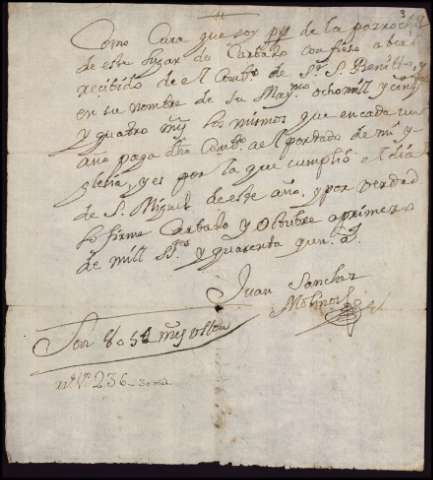 3
Como Cura que soy pp.º de la parroch
de este lugar de Carbajo confieso aber
recibido de el Conv.to de S.r S. Benitto, y
en su nombre de su May.mo ocho mill y cinq.ta
y quatro mrs. los mismos que en cada un
año paga dho Conv.to a el portado de mi y
glesia, y es por la que cumplio el dia
de S. Miguel de este año, y por verdad
lo firme Carbajo y Octubre a primero
de mill st.os y quarenta
Juan Sanchez
Molinos
Son 8054 mrs vllon
n.º 236